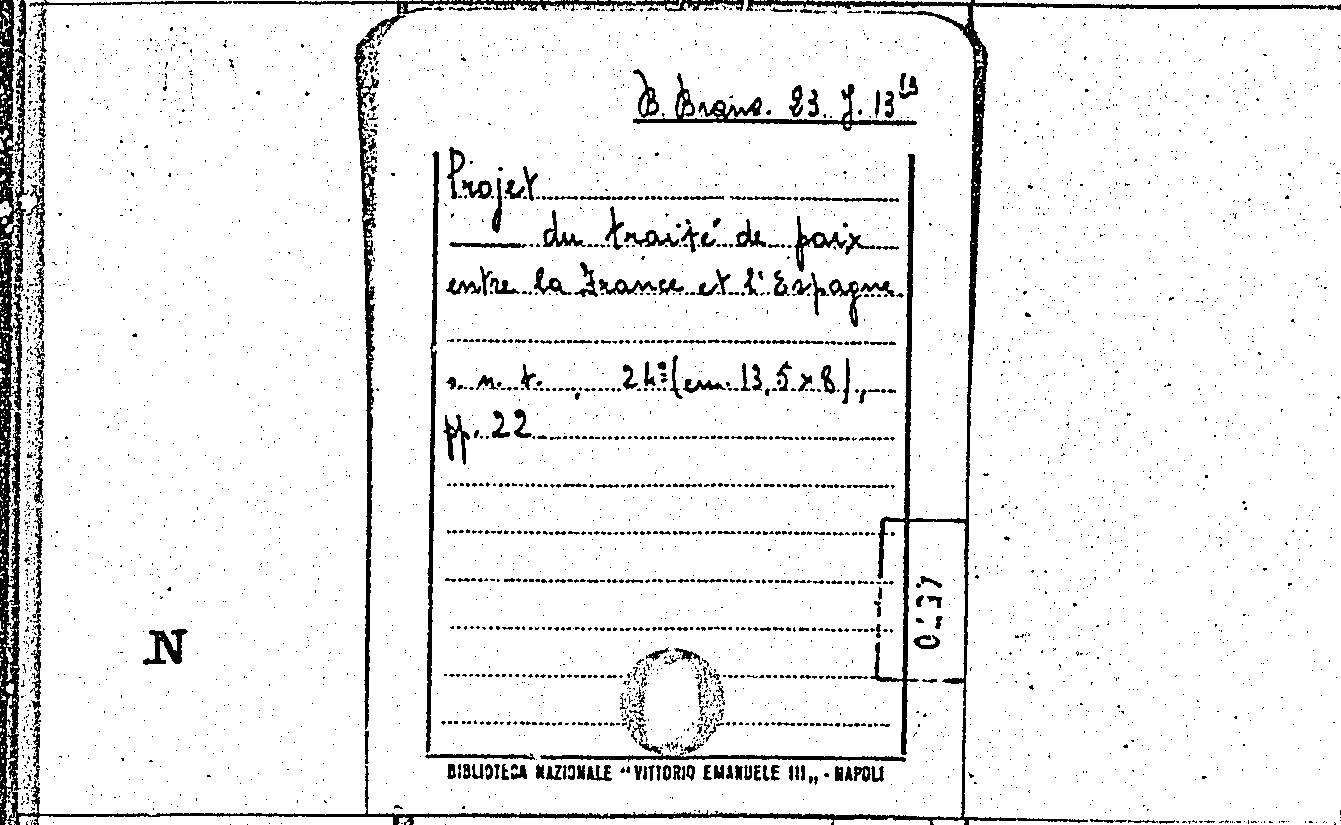 B. Branc. 23. J. 13
Projet
du traité de paix
entre la France et l'Espagne
s. n. t. , 24° (cm. 13,5 x 8),
pp. 22
N
BIBLIOTECA NAZIONALE "VITTORIO EMANUELE III„ - NAPOLI